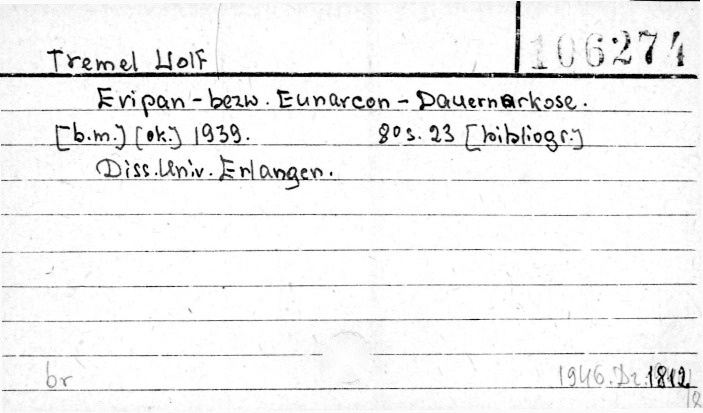 Tremel Wolf
106274
Evipan - bezw. Eunarcon - Dauernarkose.
[b.m.] [ok.] 1939. 80 s. 23 [bibliogr.]
Diss. Univ. Erlangen.
br
1946. Dr. 1812